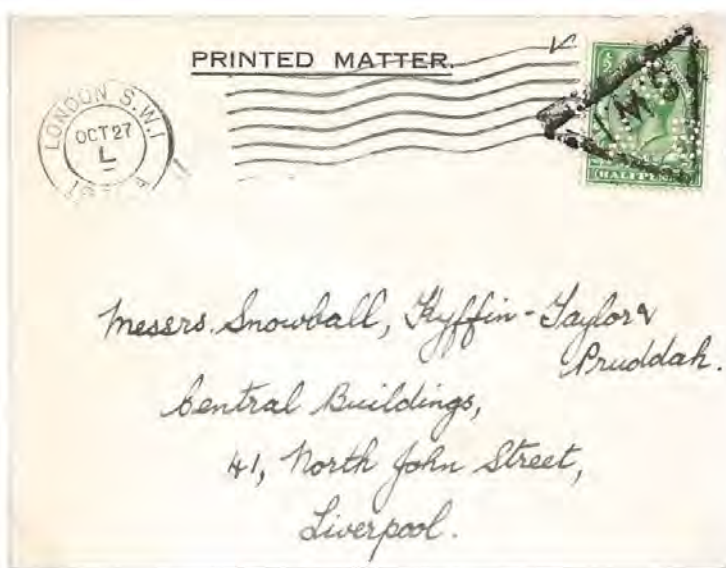 PRINTED MATTER.
LONDON S.W.1
OCT 27
L
HALFPENNY
Messrs. Snowball, Kyffin-Taylor &
Pruddah.
Central Buildings,
41, North John Street,
Liverpool.